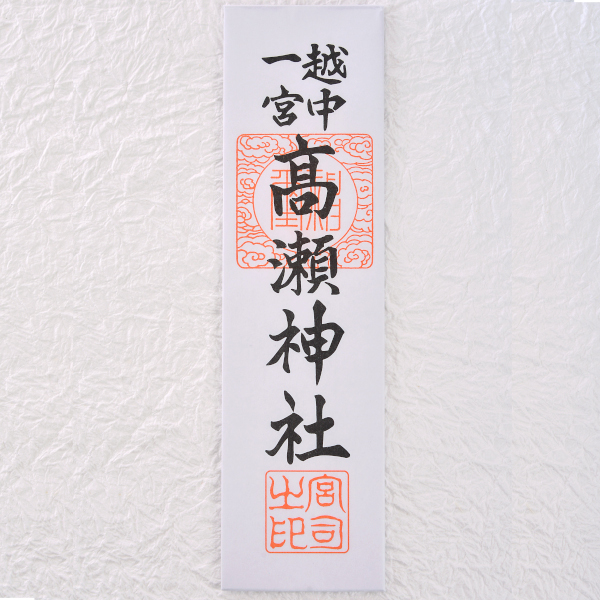 越中
一宮
髙瀬神社
宮司
之印